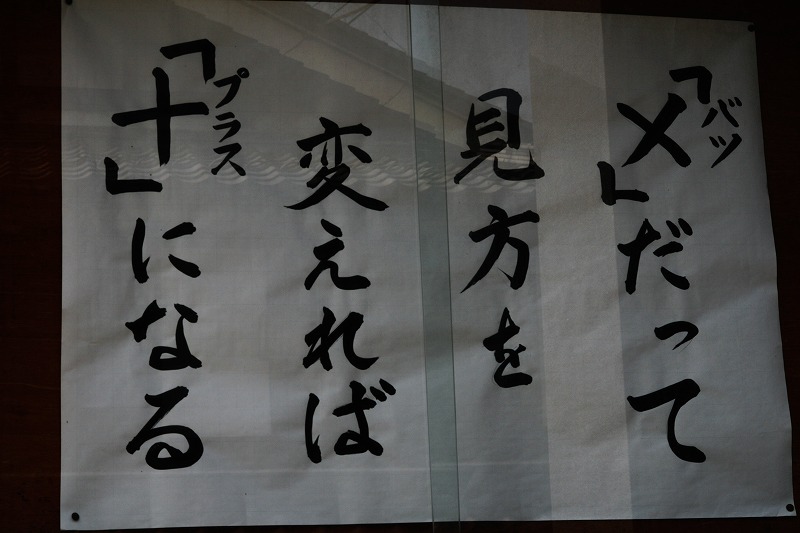 「×」だって
バツ
見方を
変えれば
「十」になる
プラス